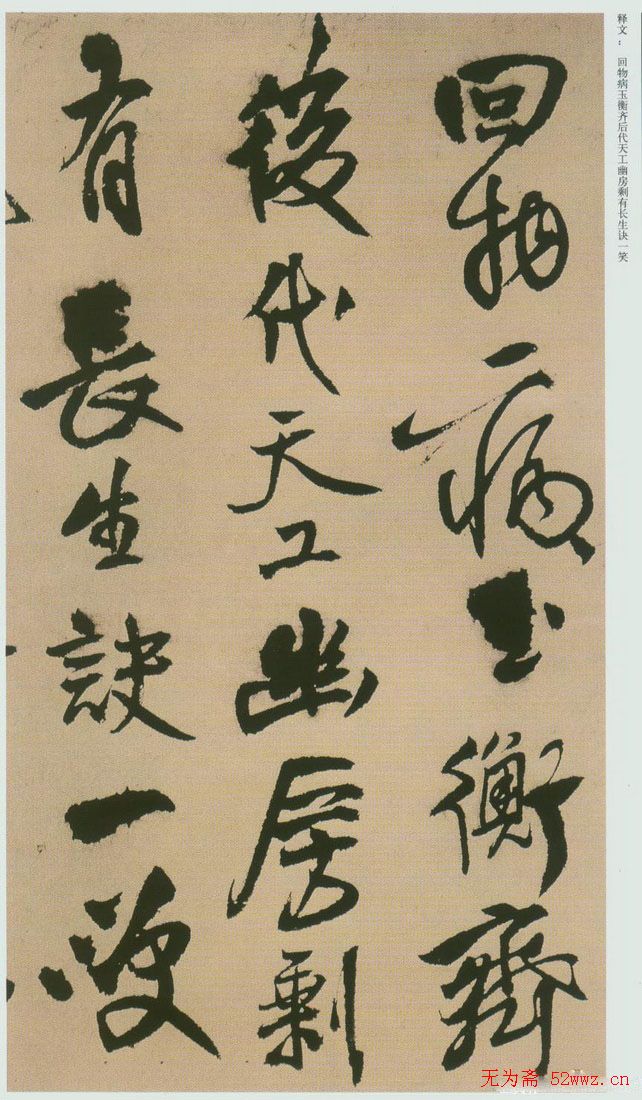 释文： 回物病玉衡齐后代天工幽房剩有长生诀一笑
回物病玉衡齊
後代天工幽房剩
有長生訣一笑
无为斋 52wwz.cn